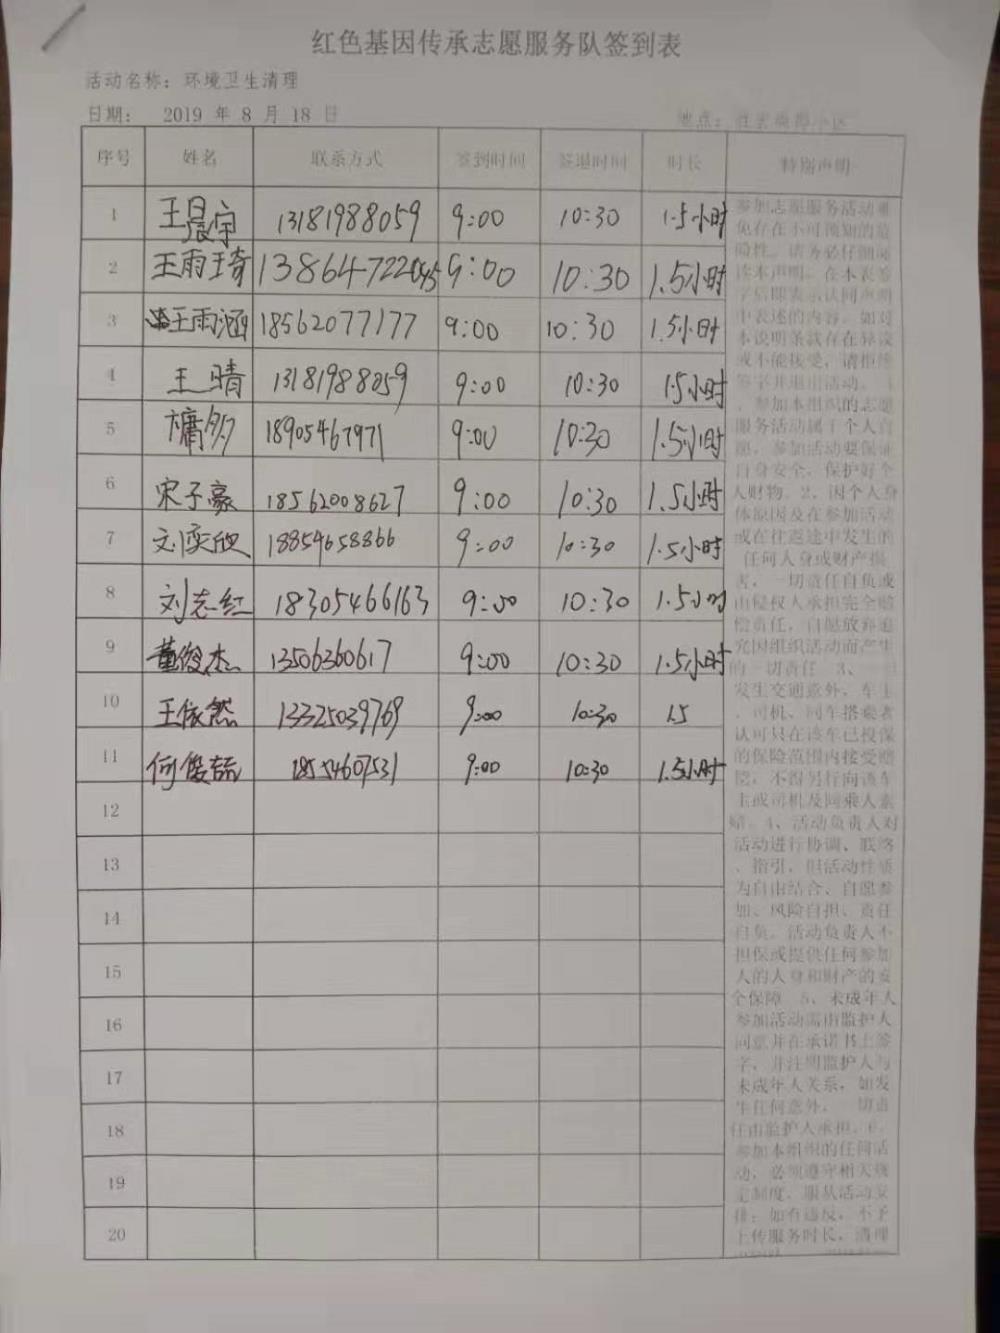 红色基因传承志愿服务队签到表
活动名称：环境卫生清理
日期： 2019 年 8 月 18 日 地点：
序号 姓名 联系方式 签到时间 签退时间 时长 特别声明
1 王晨宇 13181988059 9:00 10:30 1.5小时
2 王雨琦 13864722045 9:00 10:30 1.5小时
3 王雨涵 18562077177 9:00 10:30 1.5小时
4 王晴 13181988059 9:00 10:30 1.5小时
5 18905467971 9:00 10:30 1.5小时
6 宋子豪 18562008627 9:00 10:30 1.5小时
7 刘奕欣 18854658866 9:00 10:30 1.5小时
8 刘志红 18305466163 9:00 10:30 1.5小时
9 董俊杰 13506360617 9:00 10:30 1.5小时
10 王依然 13325039769 9:00 10:30 1.5
11 何俊喆 18554607531 9:00 10:30 1.5小时
12
13
14
15
16
17
18
19
20
参加志愿服务活动难
免存在不可预知的危
险性。请务必仔细阅
读本声明。在本表签
字后即表示认同声明
中表述的内容。如对
本说明条款存在异议
或不能接受，请拒绝
签字并退出活动。1
、参加本组织的志愿
服务活动属于个人自
愿，参加活动要保证
自身安全，保护好个
人财物。2、因个人身
体原因及在参加活动
或在往返途中发生的
任何人身或财产损
害，一切责任自负或
由侵权人承担完全赔
偿责任，自愿放弃追
究因组织活动而产生
的一切责任。3、
发生交通意外，车主
、司机、同车搭乘者
认可只在该车已投保
的保险范围内接受赔
偿，不得另行向该车
主或司机及同乘人索
赔。4、活动负责人对
活动进行协调、联络
、指引，但活动性质
为自由结合、自愿参
加、风险自担、责任
自负。活动负责人不
担保或提供任何参加
人的人身和财产的安
全保障。5、未成年人
参加活动需由监护人
同意并在承诺书上签
字，并注明监护人与
未成年人关系，如发
生任何意外，一切责
任由监护人承担。6、
参加本组织的任何活
动，必须遵守相关规
定制度，服从活动安
排；如有违反，不予
上传服务时长，清理